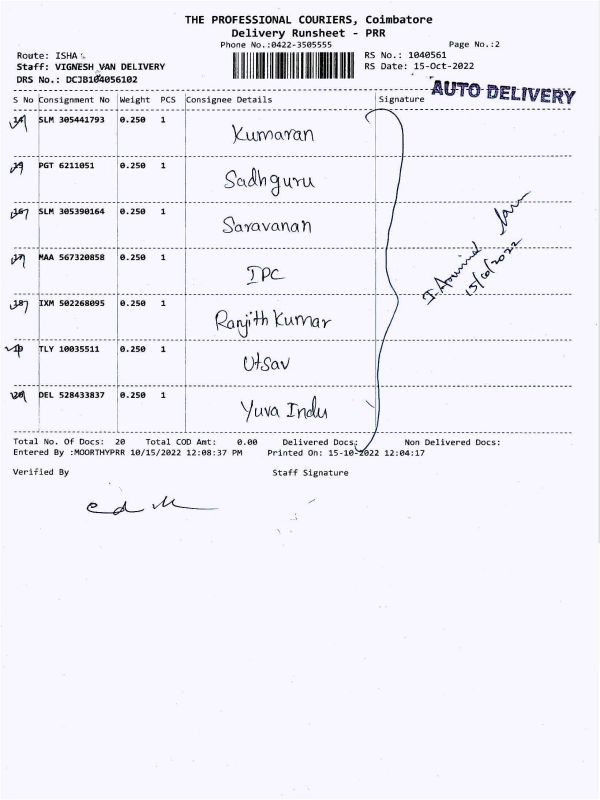 THE PROFESSIONAL COURIERS, Coimbatore
Delivery Runsheet - PRR
Phone No.:0422-3505555 Page No.:2
Route: ISHA RS No.: 1040561
Staff: VIGNESH VAN DELIVERY RS Date: 15-Oct-2022
DRS No.: DCJB104056102
AUTO DELIVERY
S No Consignment No Weight PCS Consignee Details Signature
14 SLM 305441793 0.250 1 Kumaran
15 PGT 6211051 0.250 1 Sadhguru
16 SLM 305390164 0.250 1 Saravanan
17 MAA 567320858 0.250 1 IPC
18 IXM 502268095 0.250 1 Ranjith Kumar
19 TLY 10035511 0.250 1 Utsav
20 DEL 528433837 0.250 1 Yuva Indu
15/10/2022
Total No. Of Docs: 20 Total COD Amt: 0.00 Delivered Docs: Non Delivered Docs:
Entered By :MOORTHYPRR 10/15/2022 12:08:37 PM Printed On: 15-10-2022 12:04:17
Verified By Staff Signature